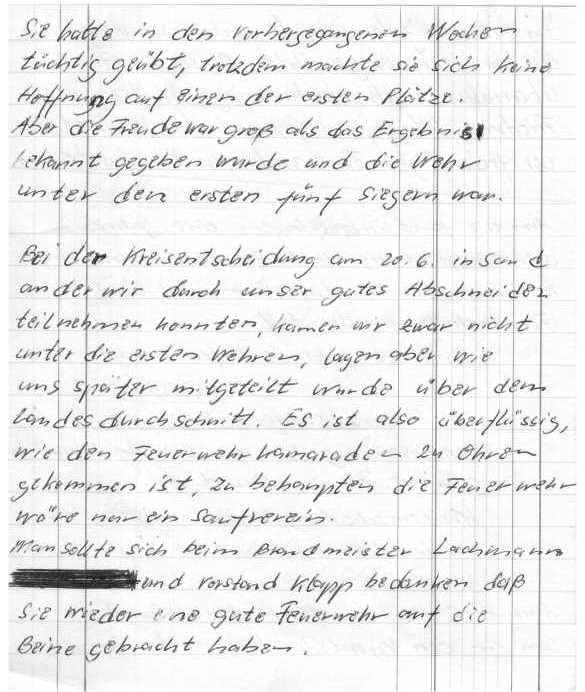 Sie hatte in den vorhergegangenen Wochen
tüchtig geübt, trotzdem machte sie sich keine
Hoffnung auf einen der ersten Plätze.
Aber die Freude war groß als das Ergebnis
bekannt gegeben wurde und die Wehr
unter den ersten fünf Siegern war.
Bei der Kreisentscheidung am 20.6. in Sand
an der wir durch unser gutes Abschneiden
teilnehmen konnten, kamen wir zwar nicht
unter die ersten Wehren, lagen aber wie
uns später mitgeteilt wurde über dem
Landesdurchschnitt. Es ist also überflüssig,
wie den Feuerwehrkamaraden zu Ohren
gekommen ist, zu behaupten die Feuerwehr
wäre nur ein Saufverein.
Man sollte sich beim Brandmeister Lachmann
und Vorstand Klapp bedanken daß
Sie wieder eine gute Feuerwehr auf die
Beine gebracht haben.